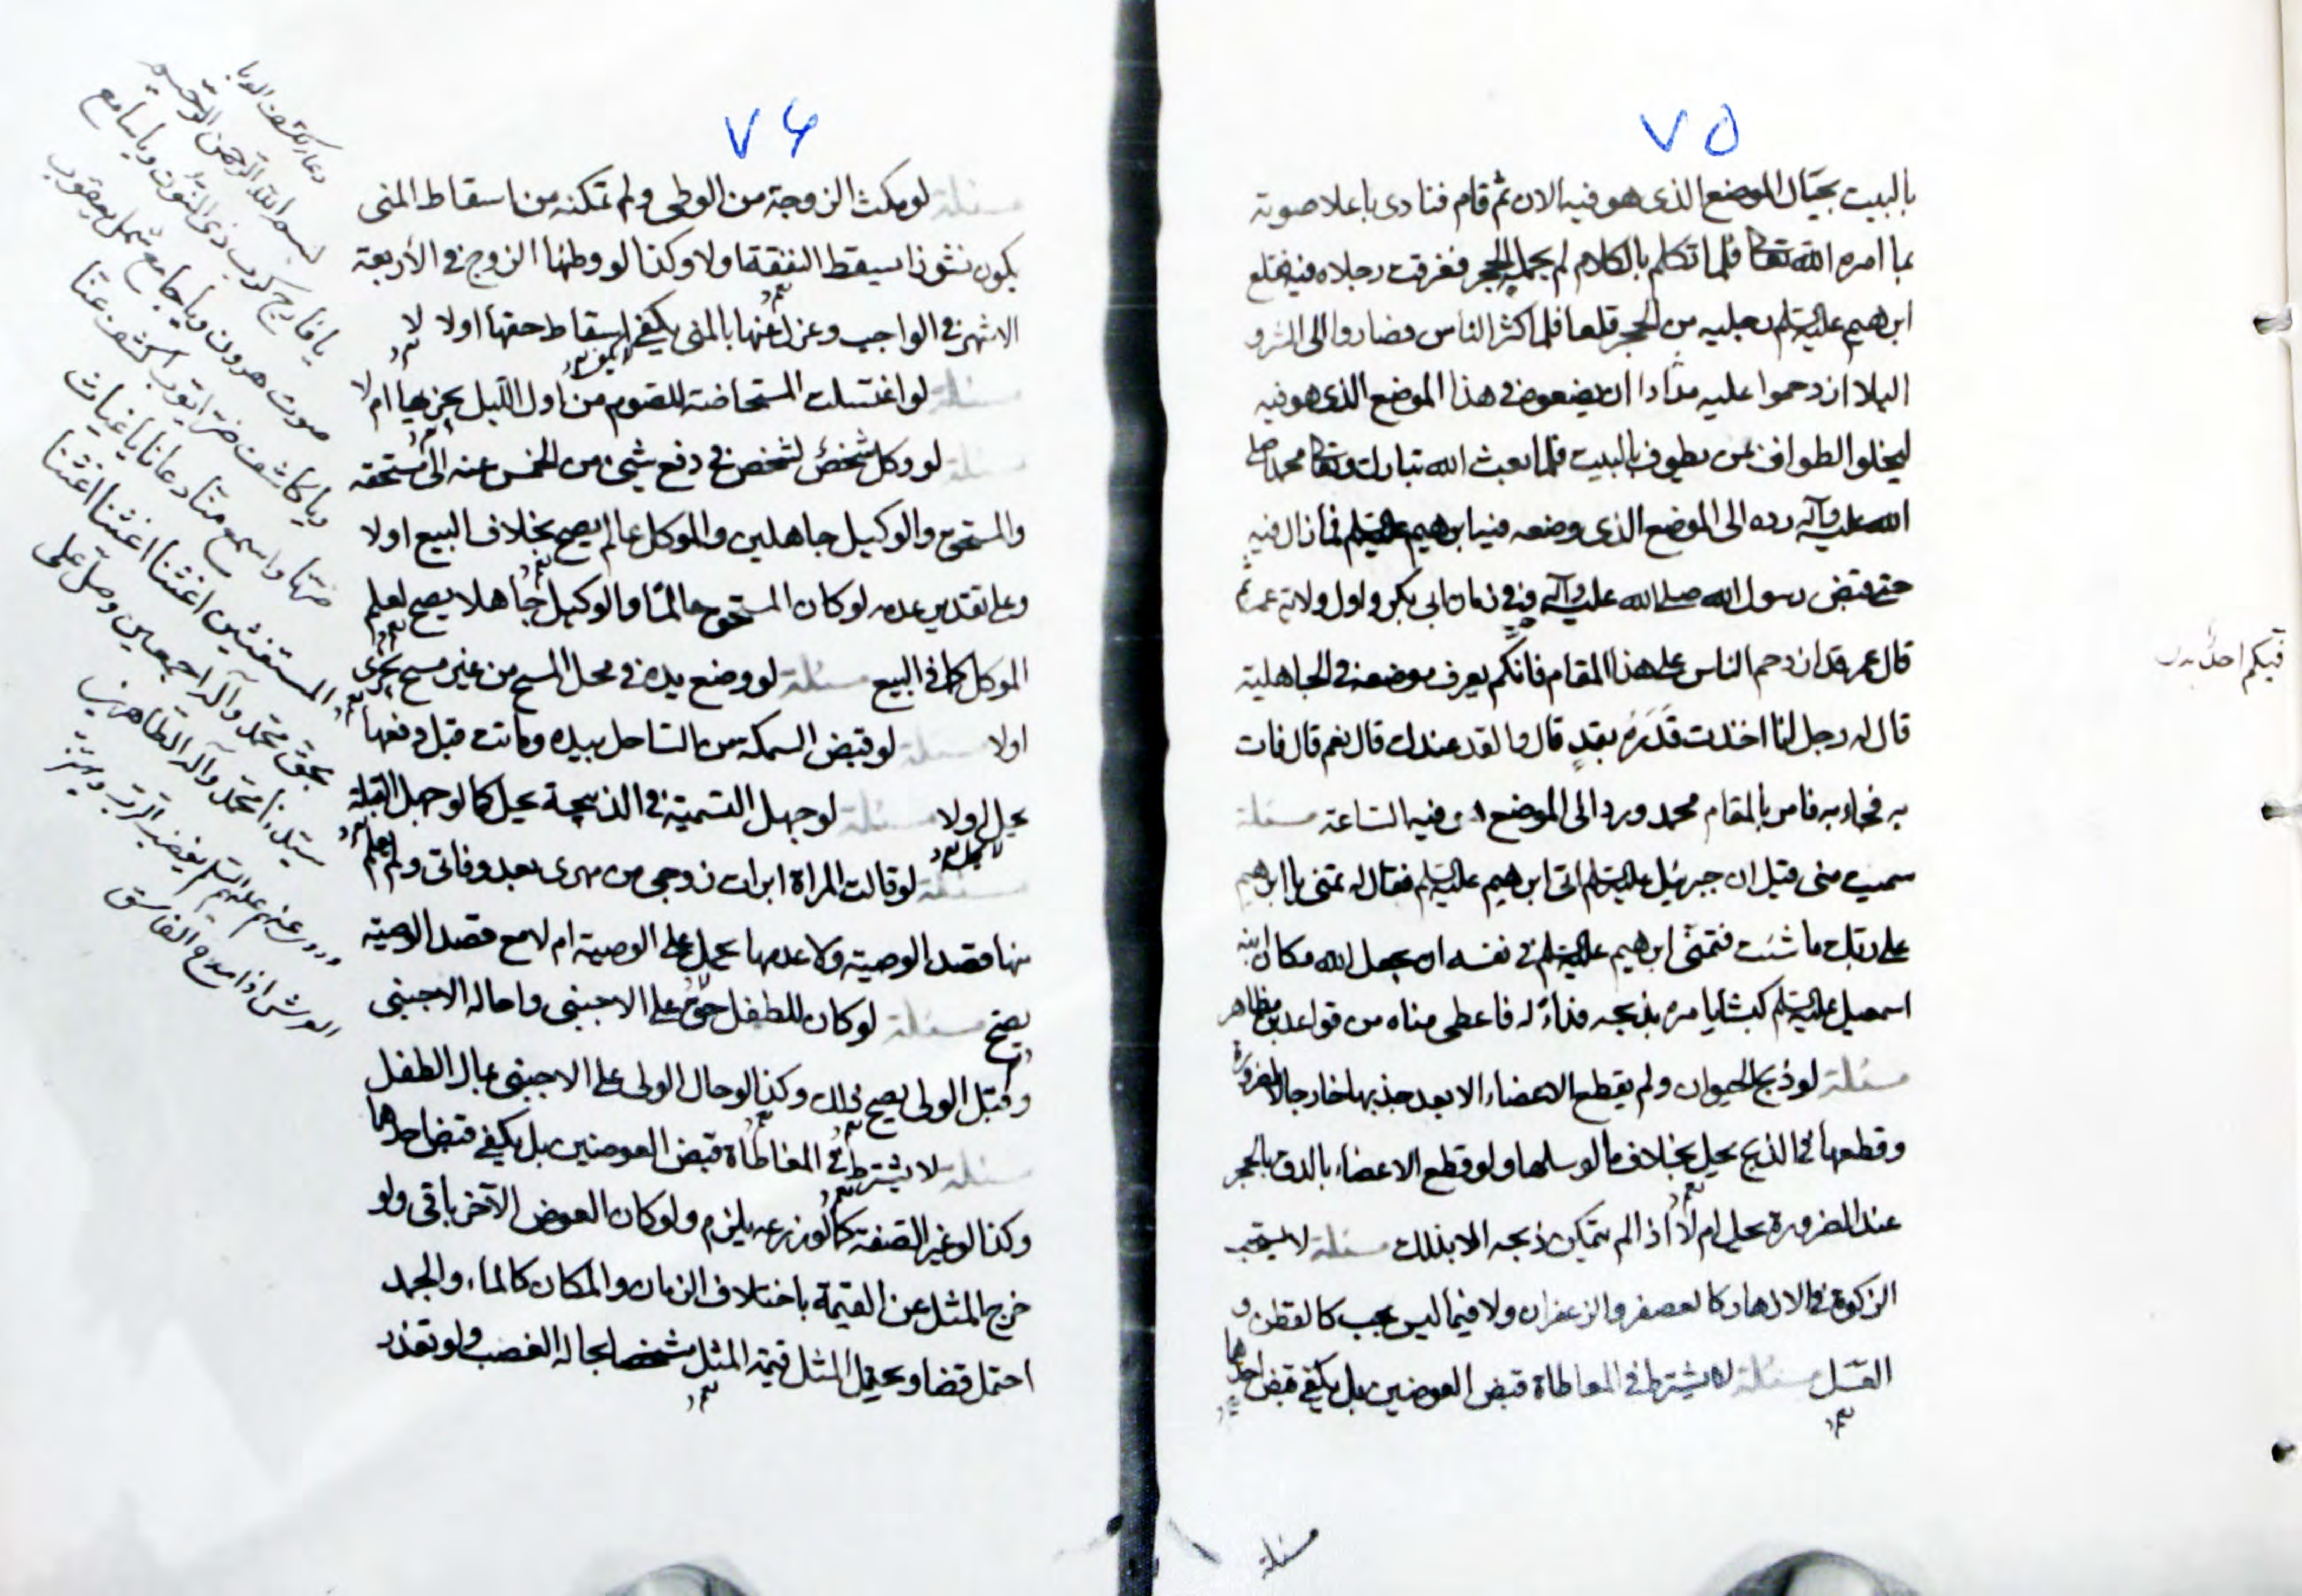 ٧٥
بالبيت بحيال الموضع الذى هو فيه الان ثم قام فنادى باعلا صوته
بما امره الله تعالى فلما تكلم بالكلام لم يحمله الحجر فغرقت رجلاه فيه فقلع
ابرهيم عليه السلم رجليه من الحجر قلعا فلما كثر الناس وصاروا الى الشر و
البلا ازدحموا عليه فرادا ان يضعوه فى هذا الموضع الذى هو فيه
ليخلوا الطواف لمن يطوف بالبيت فلما بعث الله تبارك وتعالى محمد صلى
الله عليه وآله رده الى الموضع الذى وضعه فيه ابرهيم عليه السلم فما زال فيه
حتى قبض رسول الله صلى الله عليه وآله وفى زمان ابى بكر واول ولاية عمر ثم
قال عمر قد ازدحم الناس على هذا المقام فانكم يعرف موضعه فى الجاهلية
فيكم احد
قال له رجل انا اخذت قدره بقد قال والقد عندك قال نعم قال فات
به فجاء به فامر بالمقام محمد ورد الى الموضع فيه الساعة مسئلة
سميت منى قيل ان جبرئيل عليه السلم اتى ابرهيم عليه السلم فقال له تمنى يا ابرهيم
على ربك ما شئت فتمنى ابرهيم عليه السلم فى نفسه ان يجعل الله مكان ابنه
اسمعيل عليه السلم كبشا يامره بذبحه فداء له فاعطى مناه من قواعد
مسئلة لو ذبح الحيوان ولم يقطع الاعضاء الا بعد جذبها خارجا
وقطعها فى الذبح يحل بخلاف ما لو سلها ولو قطع الاعضاء بالدق بالحجر
عند الضرورة يحل ام لا اذا لم يتمكن ذبحه الا بذلك مسئلة لا يستحب
الزكوة فى الازهار كالعصفر والزعفران ولا فيما ليس بحب كالقطن و
العسل مسئلة لا يشترط فى المعاطاة قبض العوضين بل يكفى قبض احدهما
مسئلة
٧۶
مسئلة لو مكنت الزوجة من الوطى ولم تمكنه من اسقاط المنى
يكون نشوزا يسقط النفقة او لا وكذا لو وطئها الزوج فى الاربعة
الاشهر فى الواجب وعزل عنها بالمنى يكفى اسقاط حقها اولا لا
مسئلة لو اغتسلت المستحاضة للصوم من اول الليل يجزيها ام لا
مسئلة لو وكل شخص لشخص فى دفع شىء من الخمس عنه الى مستحقه
والمستحق والوكيل جاهلين والموكل عالم يصح بخلاف البيع اولا
وعلى تقدير عدمه لو كان المستحق عالما والوكيل جاهلا يصح لعلم
الموكل كما فى البيع مسئلة لو وضع يده فى محل المسح من غير مسح يجزى
اولا مسئلة لو قبض السمكة من الساحل بيده وماتت قبل دفعها
يحل اولا مسئلة لو جهل التسمية فى الذبيحة يحل كما لو جهل القبلة
مسئلة لو قالت المراة ابرات زوجى من مهرى بعد وفاتى ولم يعلم
منها قصد الوصية ولا عدمها يحمل على الوصية ام لا مع قصد الوصية
يصح مسئلة لو كان للطفل حق على الاجنبى واحاله الاجنبى
وقبل الولى يصح ذلك وكذا لو حال الولى على الاجنبى بمال الطفل
مسئلة لا يشترط فى المعاطاة قبض العوضين بل يكفى قبض احدهما
وكذا لو غير الصفة كما لو زرعه يلزم ولو كان العوض الآخر باقى ولو
خرج المثل عن القيمة باختلاف الزمان والمكان كالماء والجمد
احتمل قضا ويحتمل المثل قيمة المثل مشخصا بحالة الغصب ولو تعذر
بسم الله الرحمن الرحيم
يا فارج كرب ذى النون ويا سامع
صوت هرون ويا جامع شمل يعقوب
ويا كاشف ضر ايوب اكشف عنا
ضرنا واسمع منا دعانا يا غياث
المستغثين اغثنا اغثنا اغثنا
بحق محمد وآله اجمعين وصل على
سيدنا محمد وآله الطاهرين
عليه السلم يغضب الرب ويهتز
العرش اذا مدح الفاسق